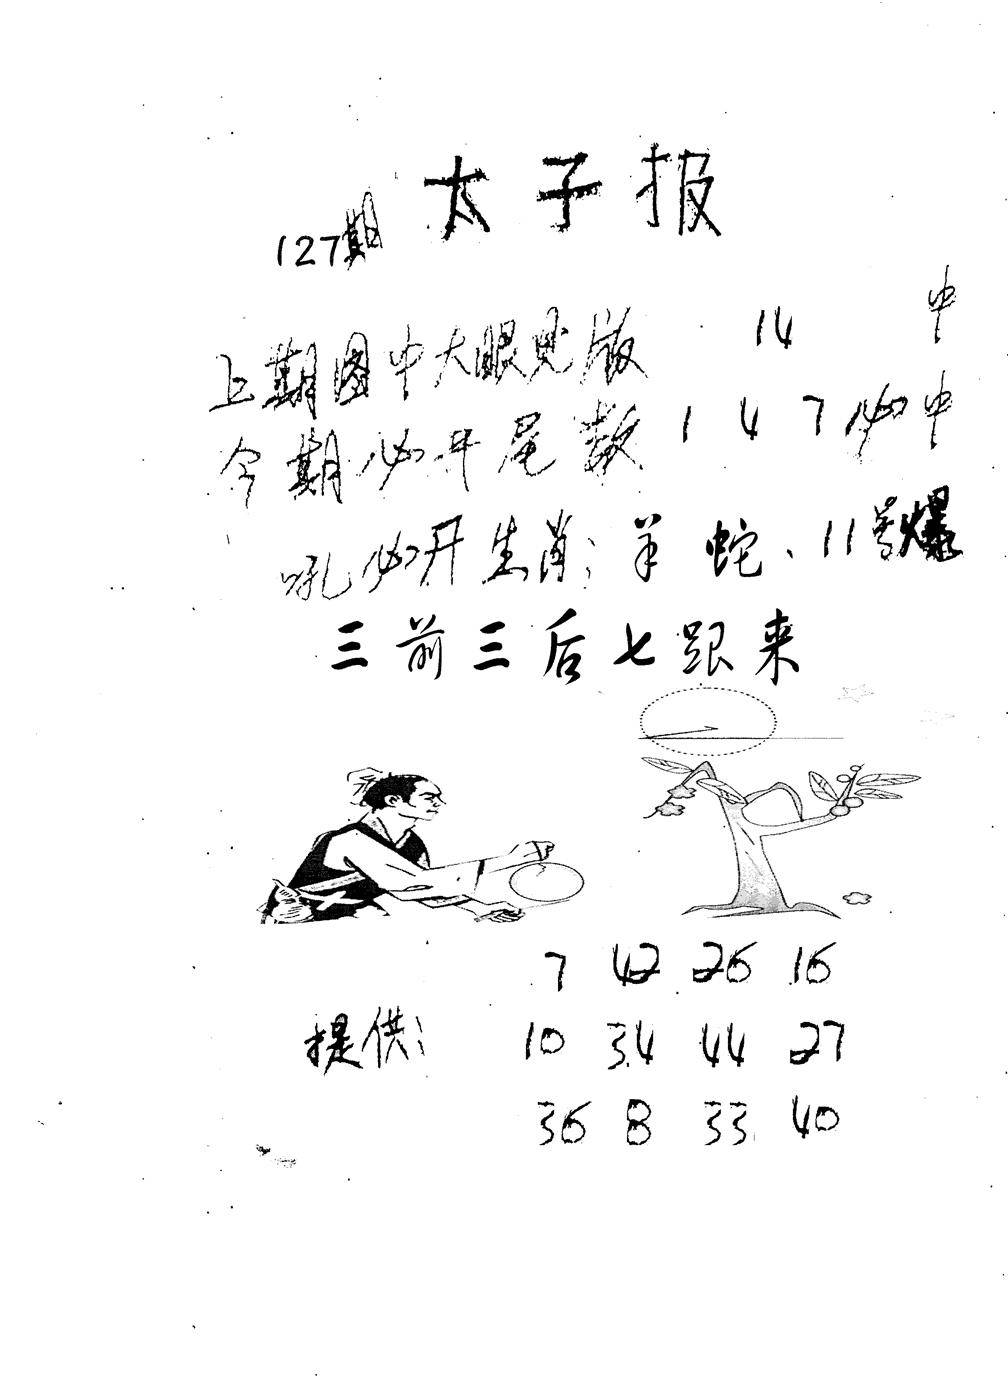 太子报
127期
上期图中大眼见版 14 中
今期必开尾数 1 4 7必中
吼必开生肖：羊 蛇、11号爆
三前三后七跟来
7 42 26 16
提供：
10 34 44 27
36 8 33 40